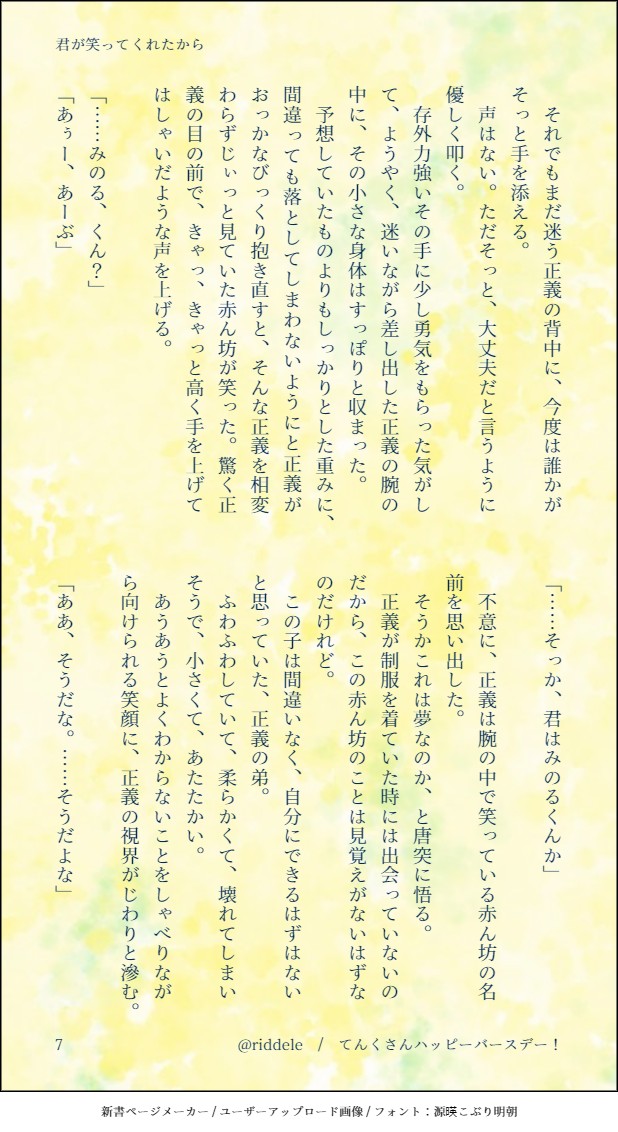 君が笑ってくれたから
　それでもまだ迷う正義の背中に、今度は誰かが
そっと手を添える。
　声はない。ただそっと、大丈夫だと言うように
優しく叩く。
　存外力強いその手に少し勇気をもらった気がし
て、ようやく、迷いながら差し出した正義の腕の
中に、その小さな身体はすっぽりと収まった。
　予想していたものよりもしっかりとした重みに、
間違っても落としてしまわないようにと正義が
おっかなびっくり抱き直すと、そんな正義を相変
わらずじぃっと見ていた赤ん坊が笑った。驚く正
義の目の前で、きゃっ、きゃっと高く手を上げて
はしゃいだような声を上げる。
「……みのる、くん？」
「あぅー、あーぶ」
「……そっか、君はみのるくんか」
　不意に、正義は腕の中で笑っている赤ん坊の名
前を思い出した。
　そうかこれは夢なのか、と唐突に悟る。
　正義が制服を着ていた時には出会っていないの
だから、この赤ん坊のことは見覚えがないはずな
のだけれど。
　この子は間違いなく、自分にできるはずはない
と思っていた、正義の弟。
　ふわふわしていて、柔らかくて、壊れてしまい
そうで、小さくて、あたたかい。
　あうあうとよくわからないことをしゃべりなが
ら向けられる笑顔に、正義の視界がじわりと滲む。
「ああ、そうだな。……そうだよな」
7
@riddele　/　てんくさんハッピーバースデー！
新書ページメーカー / ユーザーアップロード画像 / フォント：源暎こぶり明朝